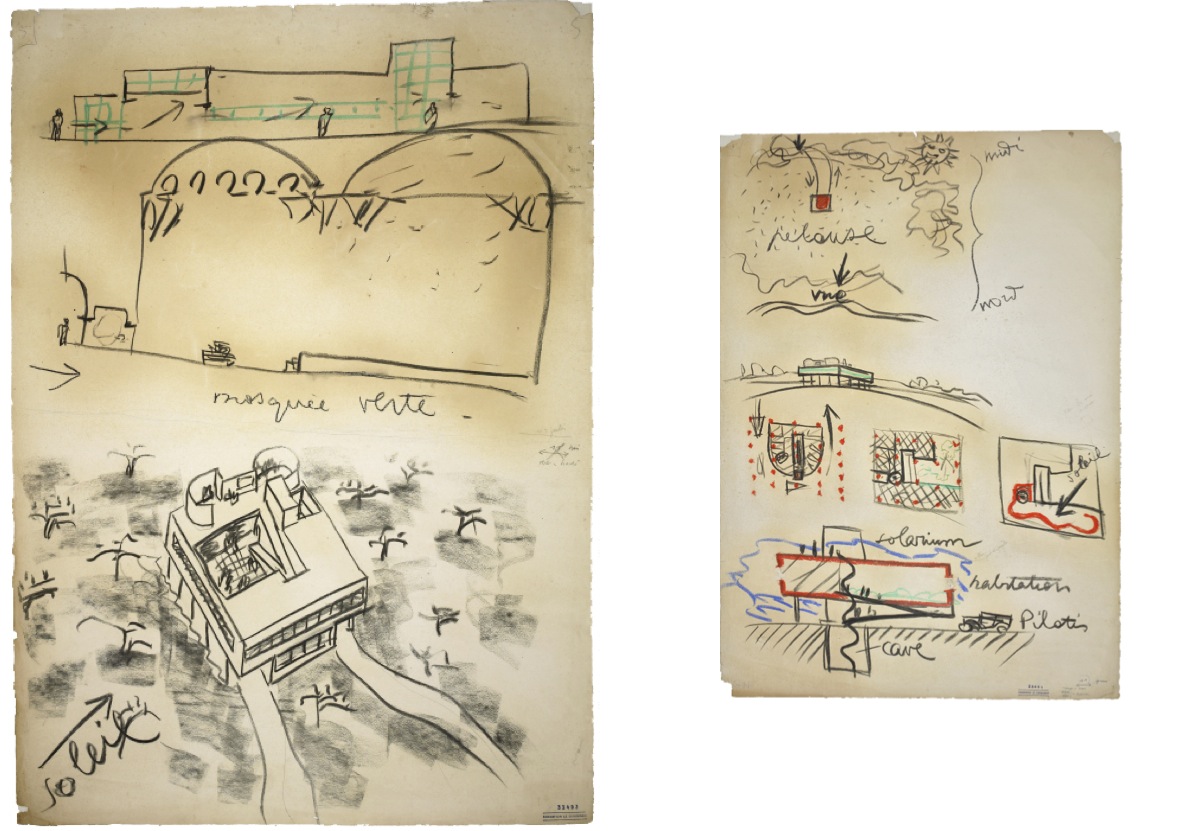 mosquée verte
soleil
33493
midi
pelouse
vue
nord
soleil
solarium
habitation
Pilotis
cave